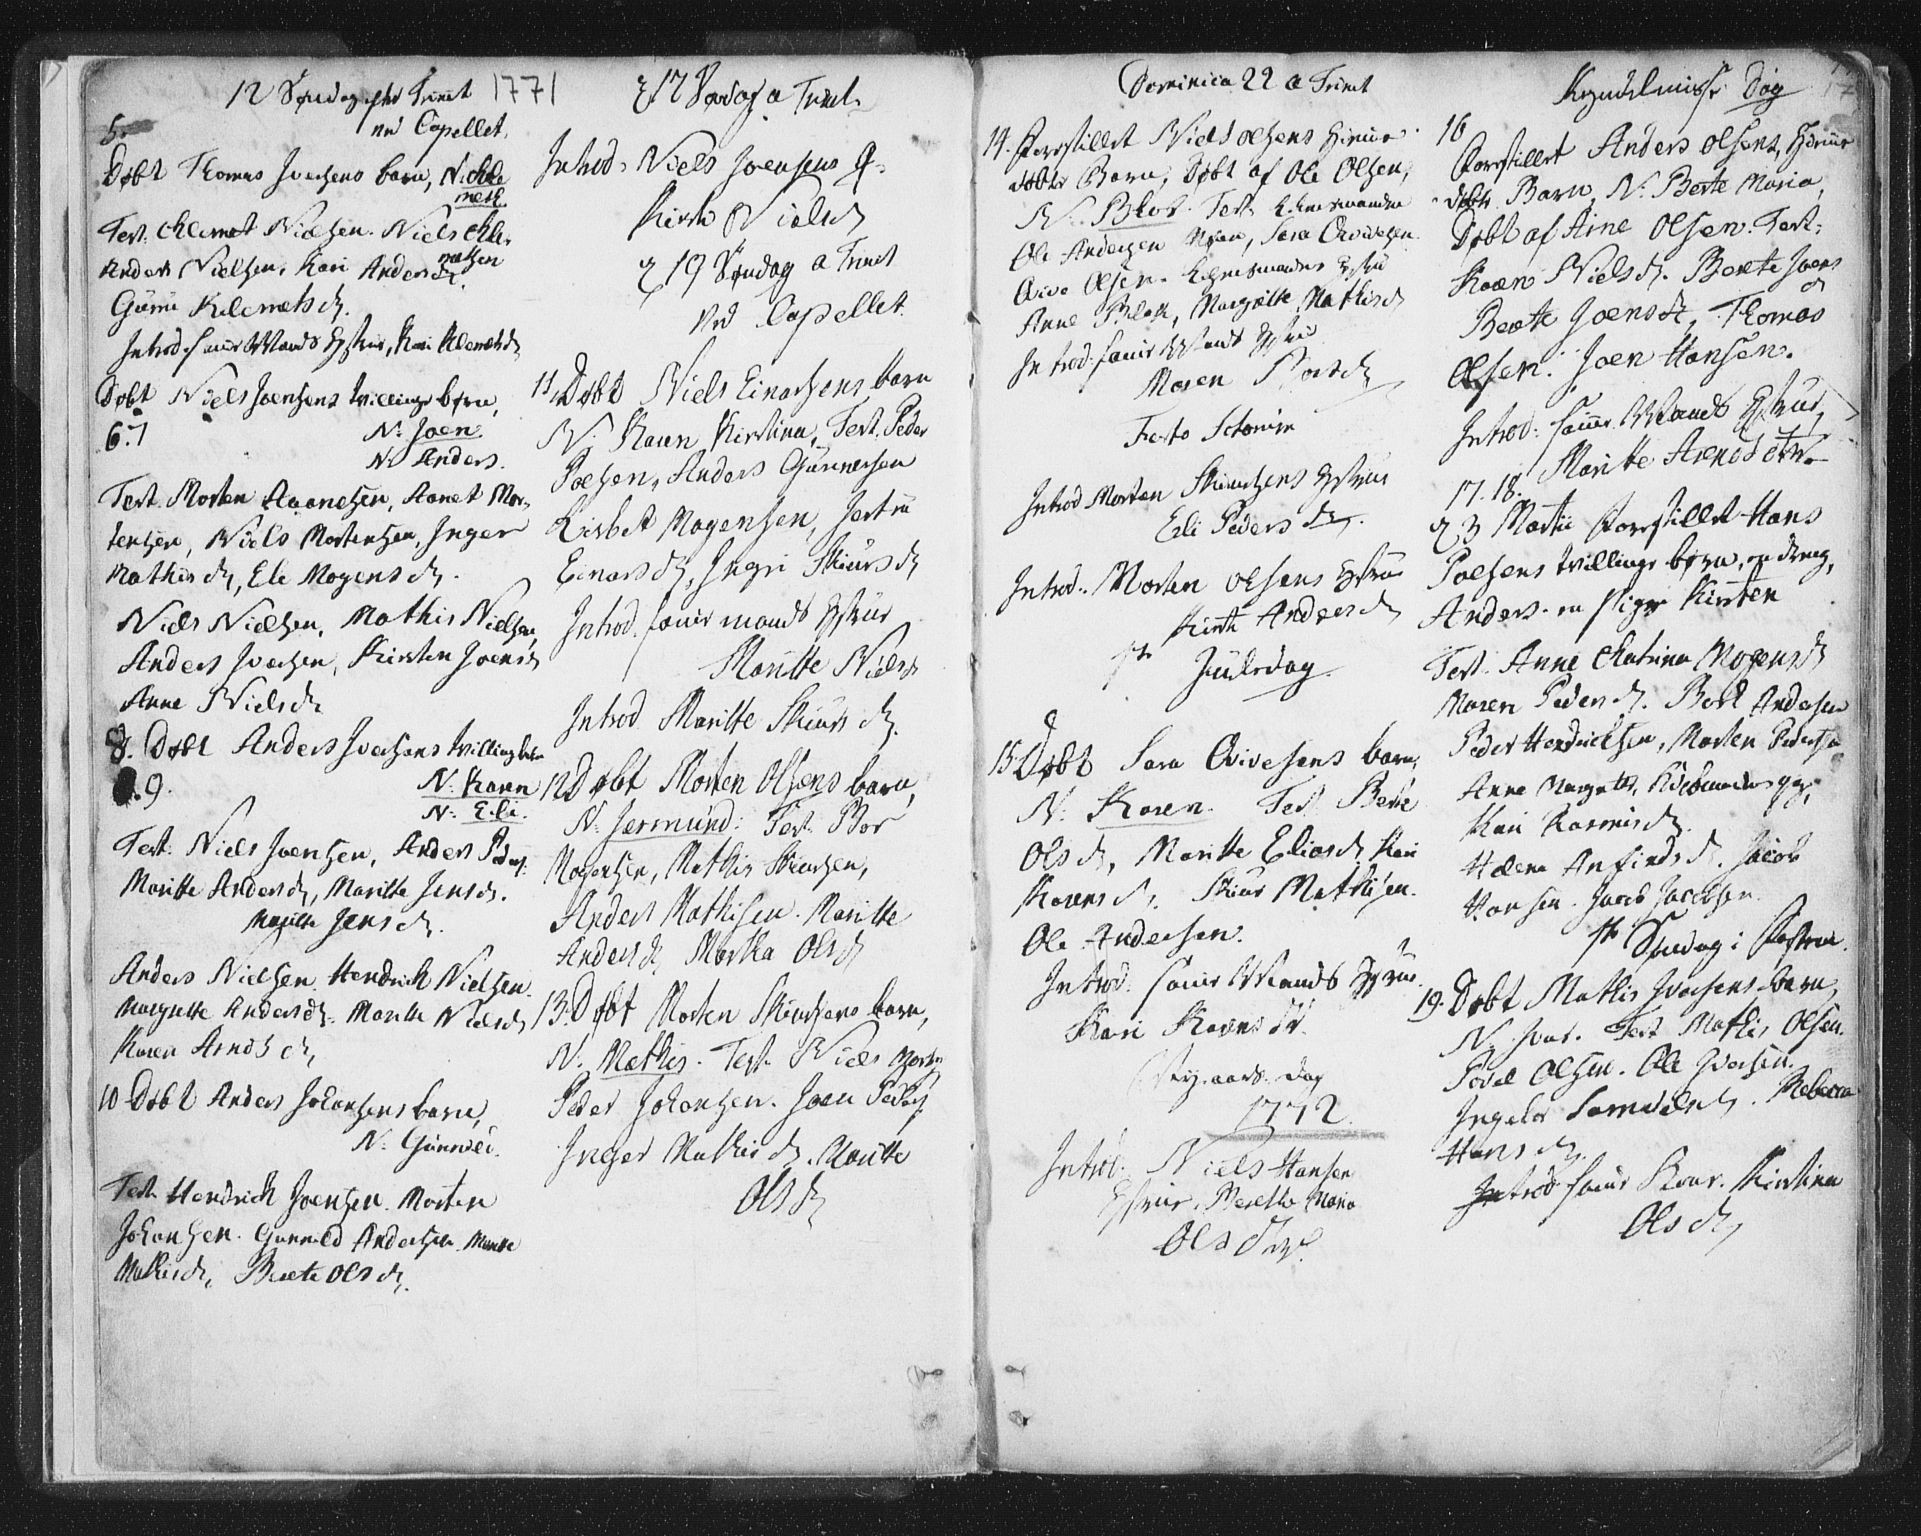 12 Søndag efter Trinit 1771
ved Capellet.
5.
Døbt Thomas Iversens barn, N: Kle
meth.
Test. Klemet Nielsen. Niels Kle
metsen
Anders Nielsen. Kari Andersd.
Guru Klemetsd.
Introd. samme Mands Hustrue, Kari Klemetsd
Døbt Niels Joensens tvillinge børn,
6.7 N: Joen
N: Anders.
Test. Morten Aaanetsen, Aanet Mor-
tensen, Niels Mortensen, Inger
Mathisd, Eli Mogensd.
Niels Nielsen, Mathis Nielsen,
Anders Iversen, Kirsten Joensd
Anne Nielsd
8. Døbt Anders Iversens tvilling børn
9. N: Karen
N: Eli.
Test. Niels Joensen, Anders Peders:
Maritte Andersd, Maritte Jensd.
Maritte Jensd.
Anders Nielsen. Hendrich Nielsen.
Margrette Andersd. Maritte Nielsd
Karen Arndsd,
10 Døbt Anders Johansens barn,
N: Gunnild.
Test. Hendrich Joensen. Morten
Johansen. Gunnild Andersen. Maritte
Mathisd, Berete Olsd.
17 Søndag a Trinit.
Introd. Niels Joensens H.
Kirsten Nielsd
19 Søndag a Trinit
ved Capellet.
11. Døbt Niels Einarsens barn
N: Karen Kirstina, Test. Peder
Poelsen, Anders Gunnersen
Lisbet Mogensen, Jertru
Einarsd, Ingri Skiursd
Introd. samme mands Hustrue
Maritte Nielsd
Introd Maritte Skiursd.
12 Døbt Morten Olsens barn,
N: Jermund: Test. Bor
Mogensen, Mathis Skiursen,
Anders Mathisen. Maritte
Andersd, Martha Olsd
13. Døbt Morten Skiursens barn,
N. Mathis. Test. Niels Morten
Peder Johansen. Joen Peders,
Inger Mathisd. Maritte
Olsd
Dominica 22 a Trinit
14. Forestillet Niels Olsens hiemme
døbte Barn, Døbt af Ole Olsen,
N: Test.
Ole Andersen Moen, Sara Aviversen.
Avive Olsen. Hustrue
Anne Margrette Mathisd
Introd. samme Mands Hustrue
Maren
Festo
Introd Morten Skiursens Hustrue
Eli Pedersd.
Introd. Morten Olsens Hustrue
Kirsti Andersd
1ste Juledag.
15. Døbt Sara Avivesens barn,
N: Karen. Test. Berte
Olsd, Maritte Eliasd, Kari
Karensd, Skiur Mathisen.
Ole Andersen.
Introd. samme Mands Hustrue.
Kari Karensd.
Nyaarsdag
1772.
Introd. Niels Hansen
Hustrue. Maria
Olsdtr.
Kyndelmisse Dag
16
Forestillet Anders Olsens, hiemme
døbte Barn, N: Berte Maria,
Døbt af Arne Olsen. Test:
Karen Nielsd. Berete Joens
d
Berete Joensd, Thomas
Olsen. Joen Hansen.
Introd: samme Mands Hustrue,
Maritte Arndsdtr.
17.18.
d 3 Martii Forestillet Hans
Poelsens tvillinge børn, en dreng,
Anders. en Pige Kirsten
Test. Anne Chatrina Mogensd
Maren Pedersd. Berte Andersen
Peder Hendrichsen, Morten Pedersen
Anne Margrette
Kari Rasmusd.
Helena Anfindsd. Jacob
Hansen. Jacob Jacobsen.
1ste Søndag i Fasten.
19. Døbt Mathis Iversens barn,
N. Ivar. Test. Mathis Olsen.
Povel Olsen. Ole Iversen.
Ingebor Samuelsd. Rebecca
Hansd.
Introd samme Kone. Kirstina
Olsd